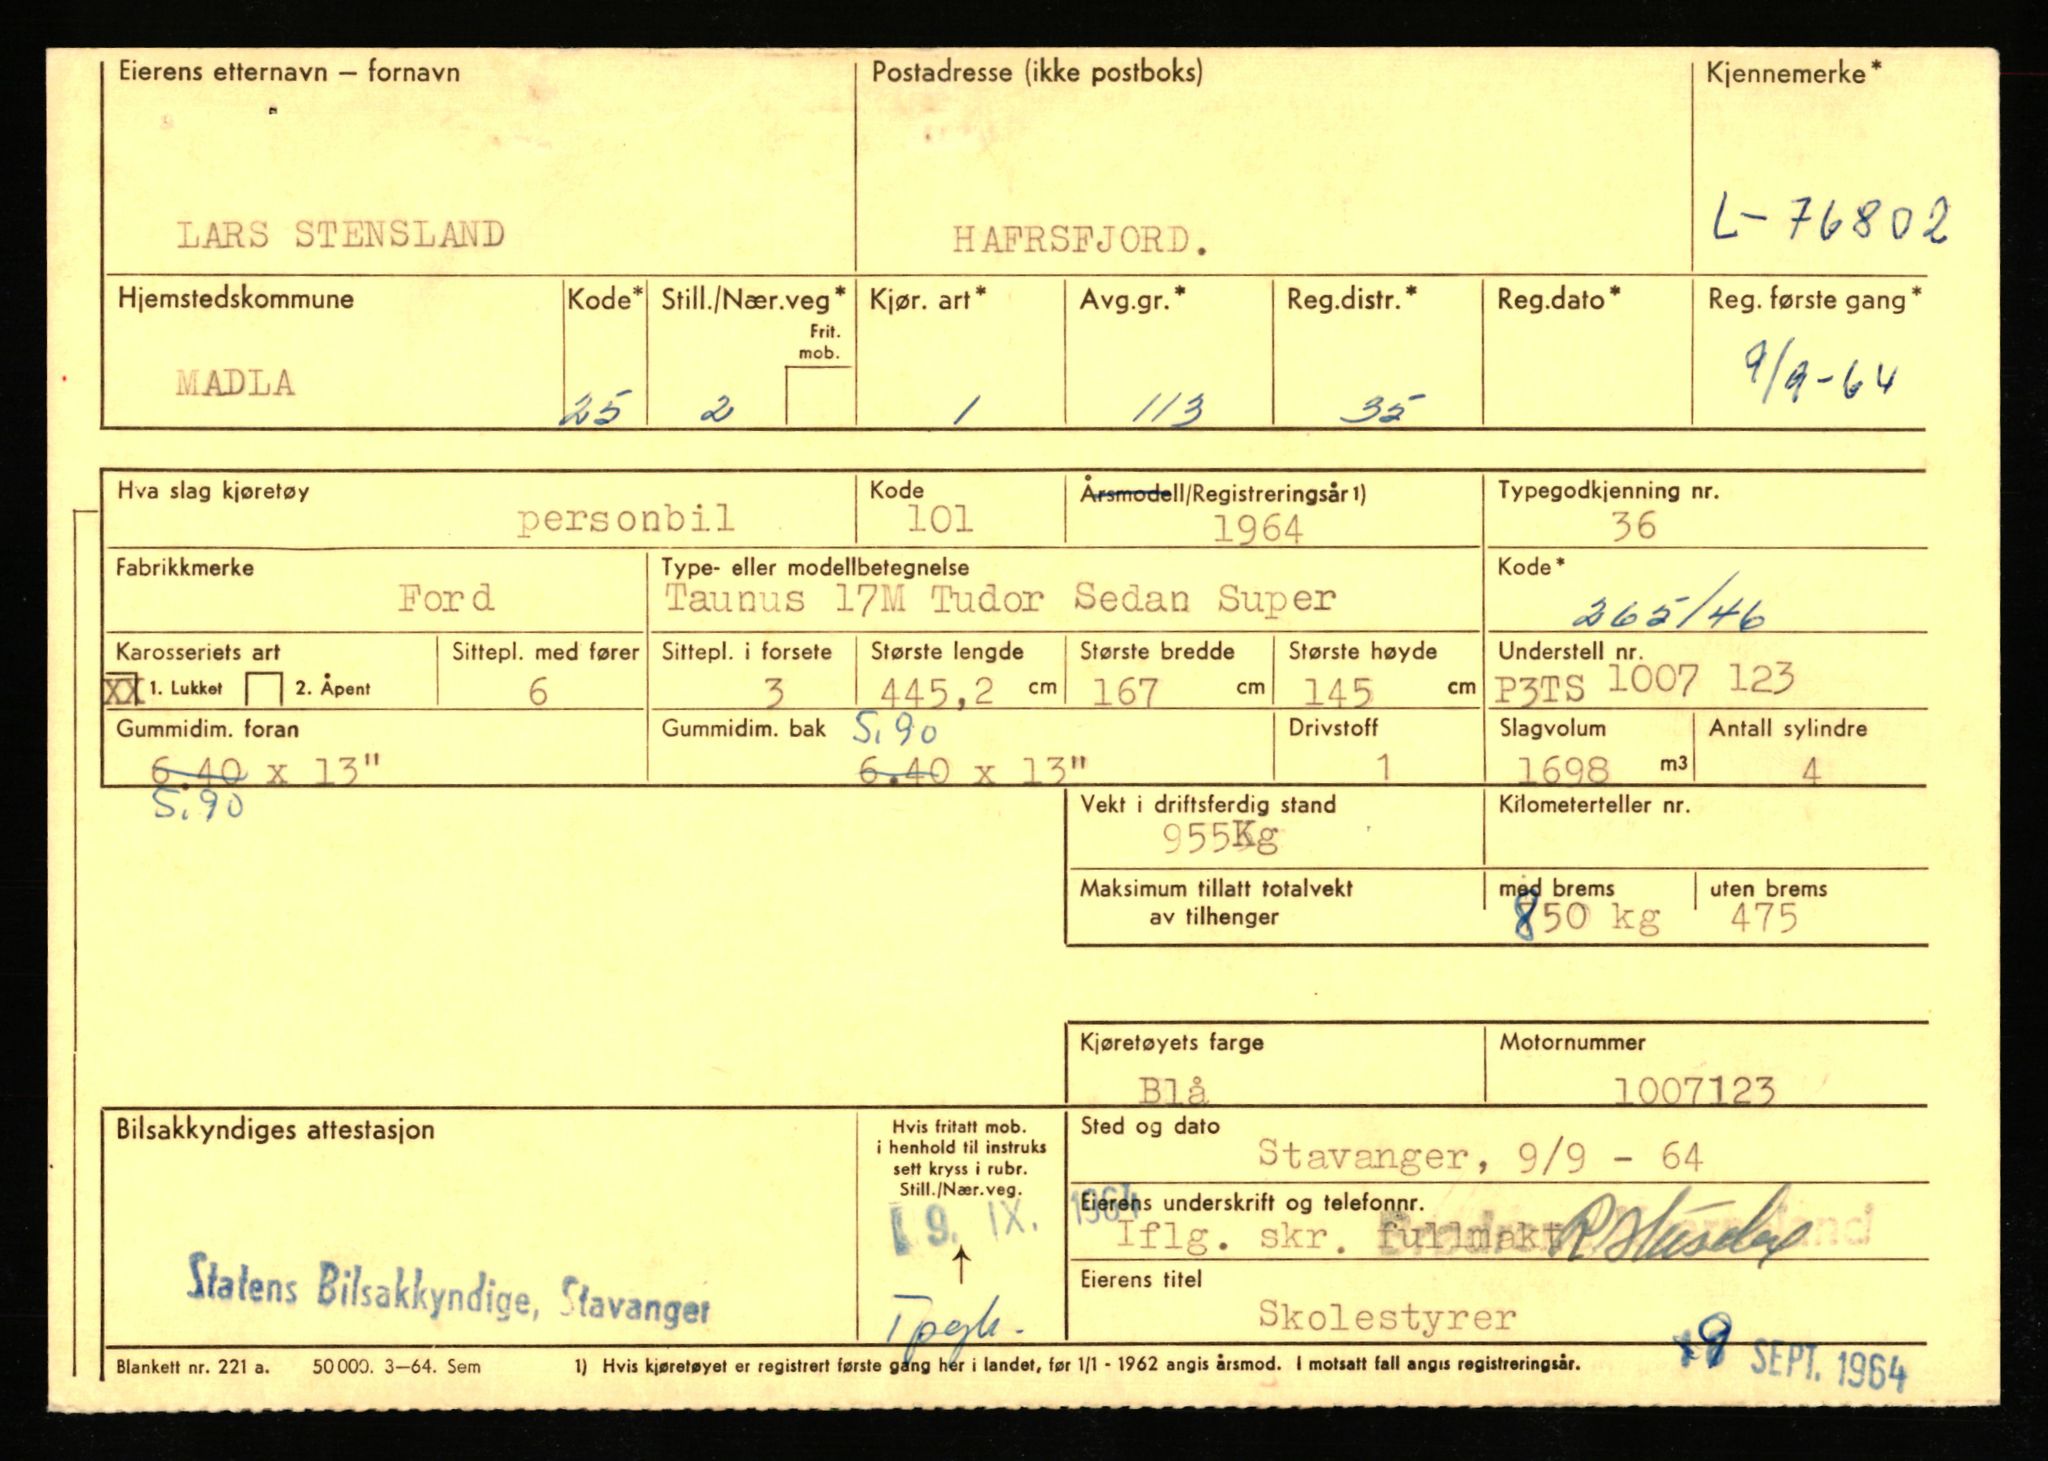 Eierens etternavn – fornavn Postadresse (ikke postboks) Kjennemerke*
LARS STENSLAND HAFRSFJORD. L-76802
Hjemstedskommune Kode* Still./Nær.veg* Kjør. art* Avg.gr.* Reg.distr.* Reg.dato* Reg. første gang*
Frit.
mob.
MADLA 25 2 1 113 35 9/9-64
Hva slag kjøretøy Kode Årsmodell/Registreringsår 1) Typegodkjenning nr.
personbil 101 1964 36
Fabrikkmerke Type- eller modellbetegnelse Kode*
Ford Taunus 17M Tudor Sedan Super 265/46
Karosseriets art Sittepl. med fører Sittepl. i forsete Største lengde Største bredde Største høyde Understell nr.
XX 1. Lukket 2. Åpent 6 3 445,2 cm 167 cm 145 cm P3TS 1007 123
Gummidim. foran Gummidim. bak 5.90 Drivstoff Slagvolum Antall sylindre
6.40 x 13" 6.40 x 13" 1 1698 m3 4
5.90
Vekt i driftsferdig stand Kilometerteller nr.
955Kg
Maksimum tillatt totalvekt med brems uten brems
av tilhenger 850 kg 475
Kjøretøyets farge Motornummer
Blå 1007123
Bilsakkyndiges attestasjon Hvis fritatt mob. Sted og dato
i henhold til instruks
sett kryss i rubr.
Still./Nær.veg.
Stavanger, 9/9 - 64
Eierens underskrift og telefonnr.
9. IX. 1964
Iflg. skr. fullmakt
Eierens titel
Statens Bilsakkyndige, Stavanger
Skolestyrer
Blankett nr. 221 a. 50 000. 3–64. Sem 1) Hvis kjøretøyet er registrert første gang her i landet, før 1/1 - 1962 angis årsmod. I motsatt fall angis registreringsår.
9 SEPT. 1964